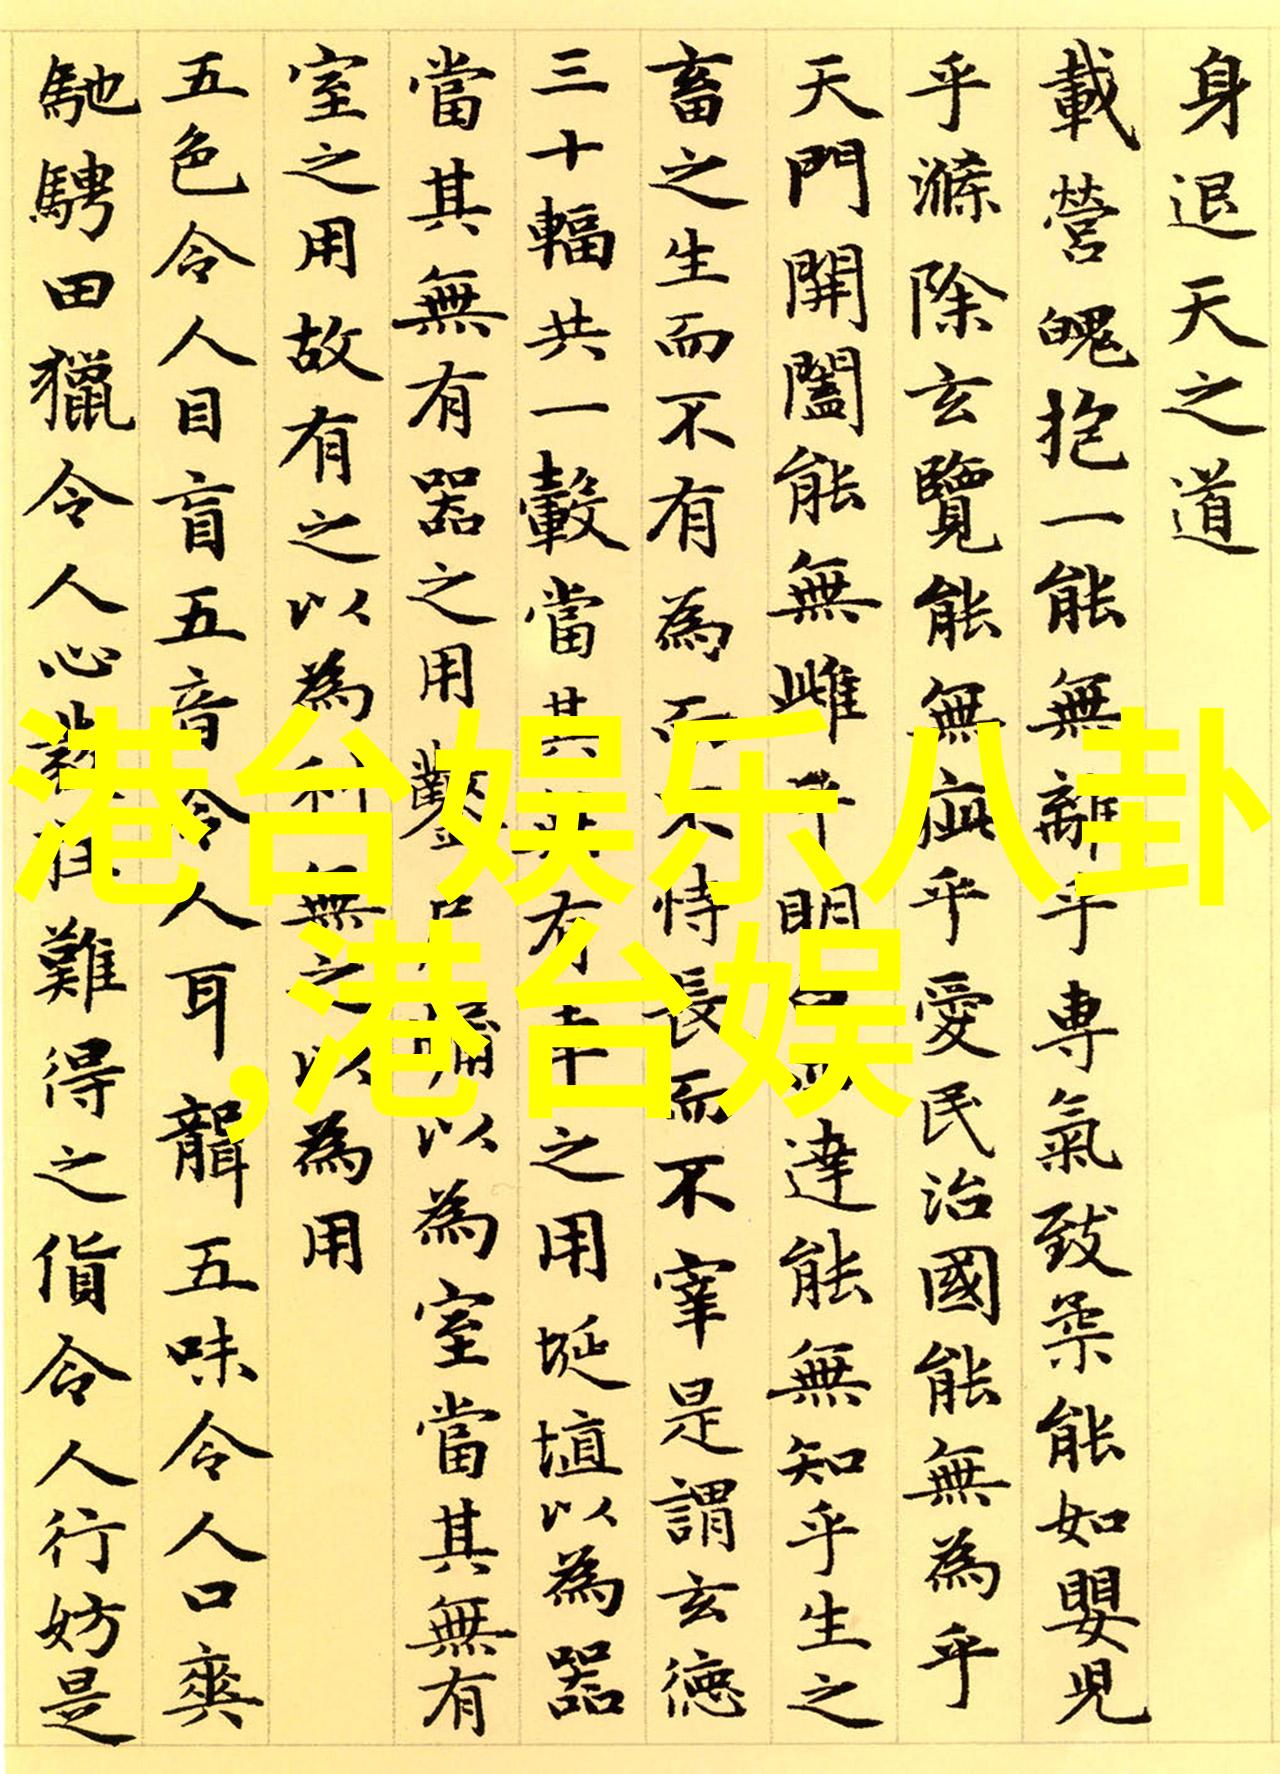 身退天之道
載營魄抱一能無離乎專氣致柔能如嬰兒
乎滌除玄覽能無疵乎愛民治國能無為乎
天門開闔能無雌乎明白四達能無知乎生之
畜之生而不有為而不恃長而不宰是謂玄德
三十輻共一轂當其無有車之用埏埴以為器
當其無有器之用鑿戶牖以為室當其無有
室之用故有之以為利無之以為用
五色令人目盲五音令人耳聾五味令人口爽
馳騁田獵令人心發狂難得之貨令人行妨是
港台娱乐八卦
,港台娱